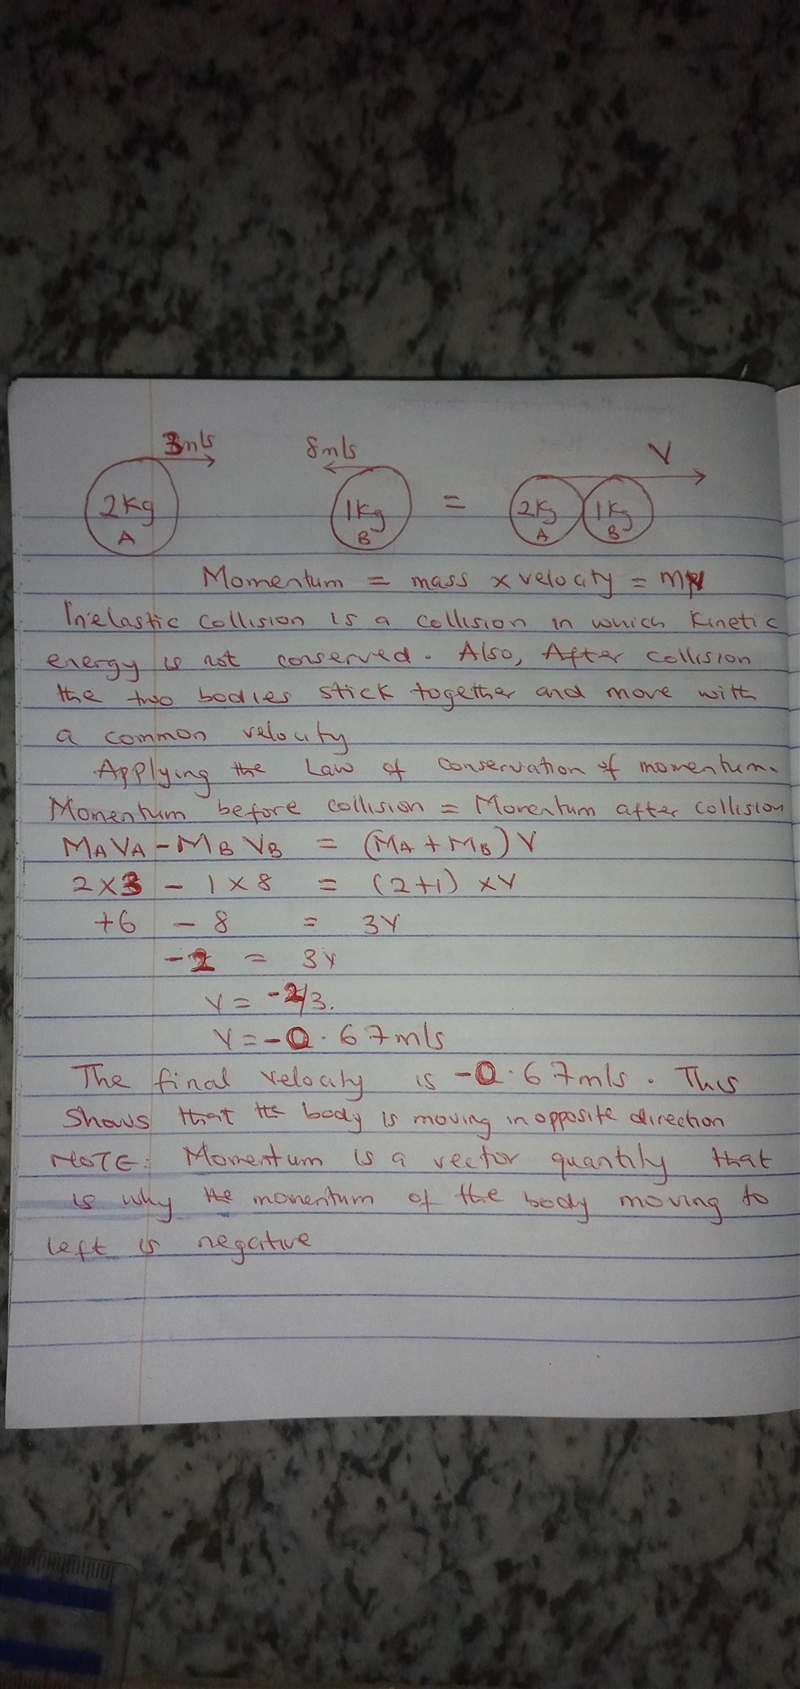 3m/s 8m/s V
2Kg 1Kg = 2Kg 1Kg
A B A B
Momentum = mass x velocity = mv
Inelastic collision is a collision in which kinetic
energy is not conserved. Also, After collision
the two bodies stick together and move with
a common velocity
Applying the Law of conservation of momentum.
Momentum before collision = Momentum after collision
MAVA - MBVB = (MA + MB) V
2 x 3 - 1 x 8 = (2+1) x V
+6 - 8 = 3V
-2 = 3V
V = -2/3.
V = -0.67m/s
The final velocity is -0.67m/s. This
shows that the body is moving in opposite direction
NOTE: Momentum is a vector quantity that
is why the momentum of the body moving to
left is negative